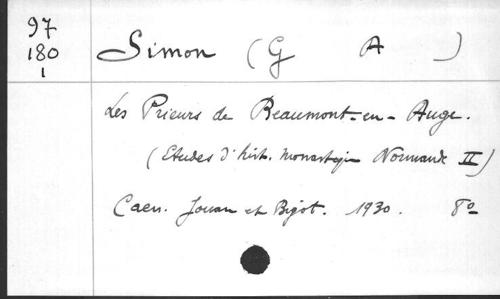 97
180
1
Simon (G A )
Les Prieurs de Beaumont-en-Auge.
(Etudes d'hist. monastique Normande II)
Caen. Jouan et Bigot. 1930. 8º